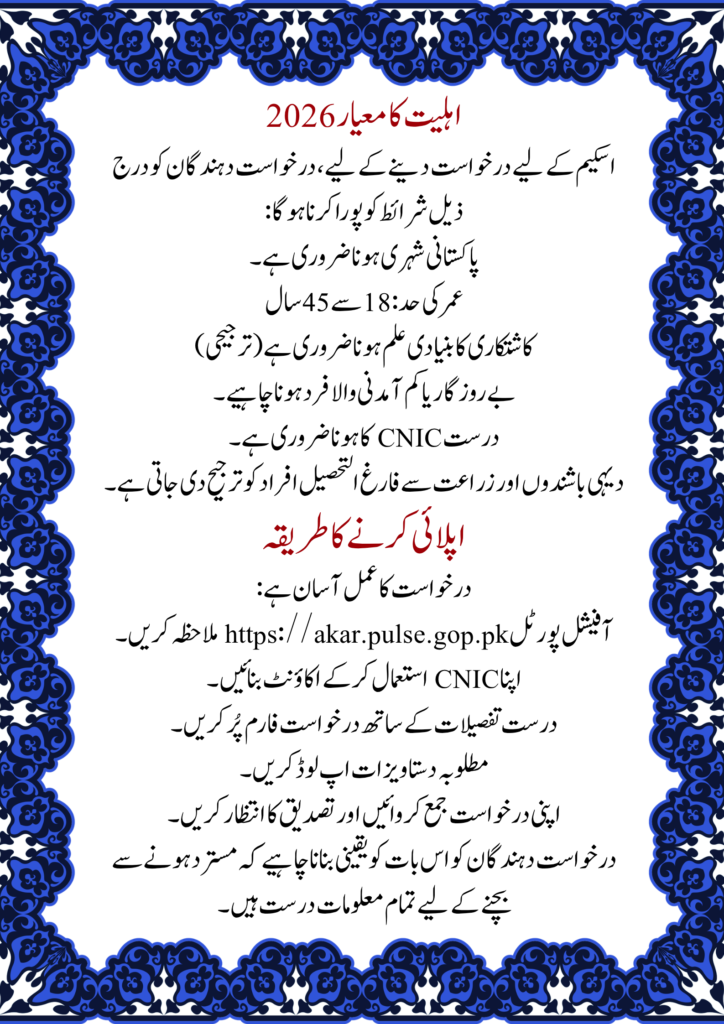 اہلیت کا معیار 2026
اسکیم کے لیے درخواست دینے کے لیے، درخواست دہندگان کو درج
ذیل شرائط کو پورا کرنا ہوگا:
پاکستانی شہری ہونا ضروری ہے۔
عمر کی حد: 18 سے 45 سال
کاشتکاری کا بنیادی علم ہونا ضروری ہے (ترجیحی)
بے روزگار یا کم آمدنی والا فرد ہونا چاہیے۔
درست CNIC کا ہونا ضروری ہے۔
دیہی باشندوں اور زراعت سے فارغ التحصیل افراد کو ترجیح دی جاتی ہے۔
اپلائی کرنے کا طریقہ
درخواست کا عمل آسان ہے:
آفیشل پورٹل https://akar.pulse.gop.pk ملاحظہ کریں۔
اپنا CNIC استعمال کرکے اکاؤنٹ بنائیں۔
درست تفصیلات کے ساتھ درخواست فارم پُر کریں۔
مطلوبہ دستاویزات اپ لوڈ کریں۔
اپنی درخواست جمع کروائیں اور تصدیق کا انتظار کریں۔
درخواست دہندگان کو اس بات کو یقینی بنانا چاہیے کہ مسترد ہونے سے
بچنے کے لیے تمام معلومات درست ہیں۔